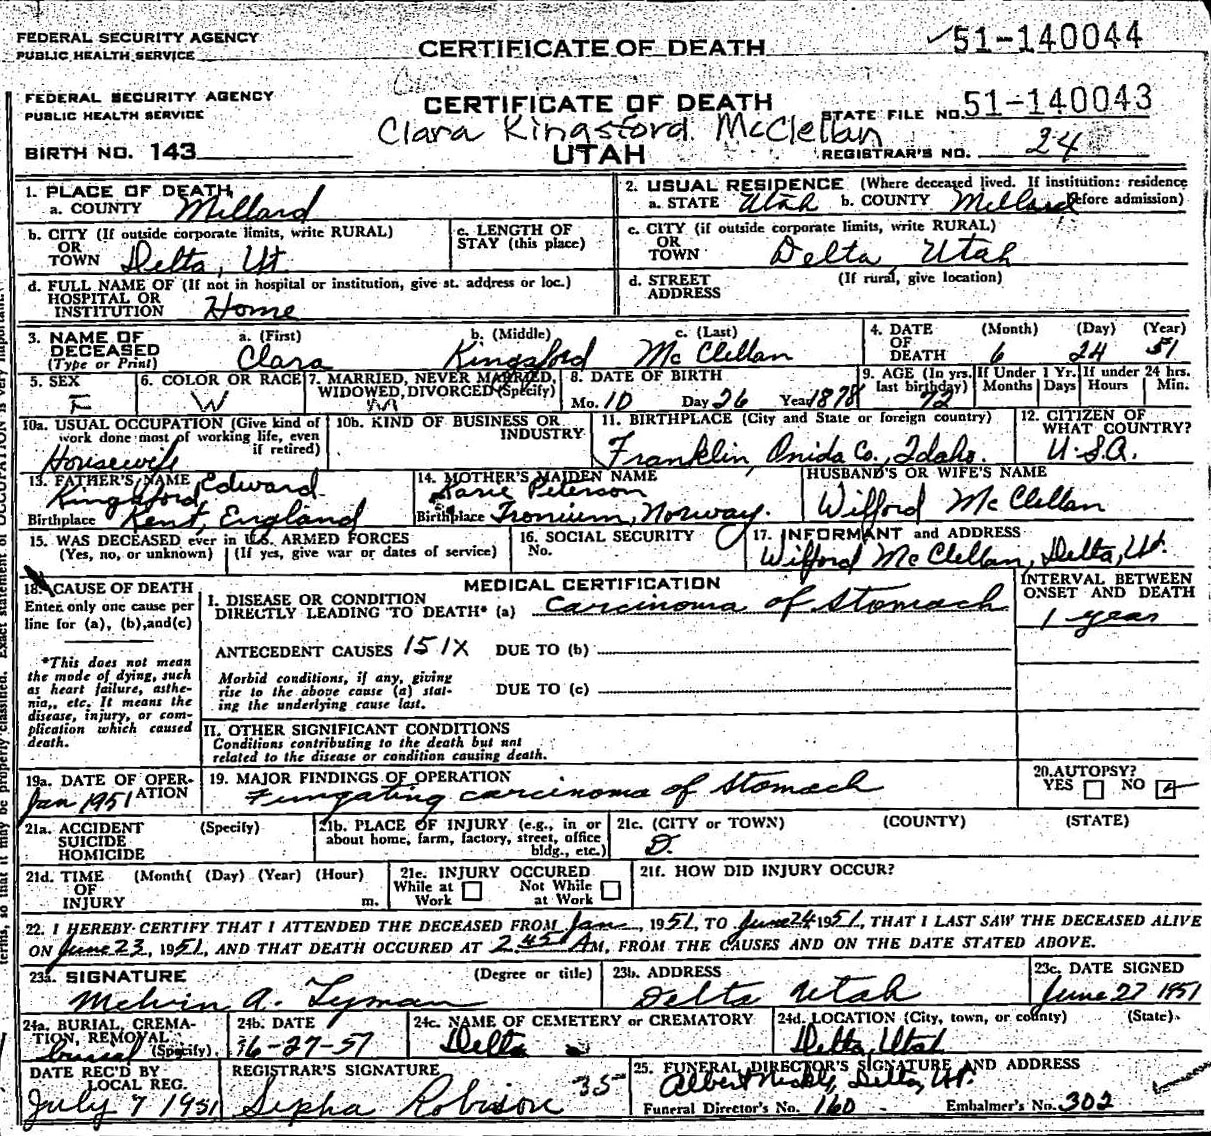 FEDERAL SECURITY AGENCY
PUBLIC HEALTH SERVICE
CERTIFICATE OF DEATH
51-140044
FEDERAL SECURITY AGENCY
PUBLIC HEALTH SERVICE
CERTIFICATE OF DEATH
STATE FILE NO. 51-140043
Clara Kingsford McClellan
BIRTH NO. 143
UTAH
REGISTRAR'S NO. 24
1. PLACE OF DEATH
a. COUNTY Millard
2. USUAL RESIDENCE (Where deceased lived. If institution: residence before admission)
a. STATE Utah b. COUNTY Millard
b. CITY (If outside corporate limits, write RURAL)
OR
TOWN Delta, Ut.
c. LENGTH OF
STAY (this place)
c. CITY (if outside corporate limits, write RURAL)
OR
TOWN Delta Utah
d. FULL NAME OF (If not in hospital or institution, give st. address or loc.)
HOSPITAL OR
INSTITUTION Home
d. STREET (If rural, give location)
ADDRESS
3. NAME OF
DECEASED
(Type or Print)
a. (First) b. (Middle) c. (Last)
Clara Kingsford McClellan
4. DATE (Month) (Day) (Year)
OF
DEATH 6 24 51
5. SEX
F
6. COLOR OR RACE
W
7. MARRIED, NEVER MARRIED,
WIDOWED, DIVORCED (Specify)
M
8. DATE OF BIRTH
Mo. 10 Day 26 Year 1878
9. AGE (In yrs. last birthday) 72
If Under 1 Yr. Months Days
If under 24 hrs. Hours Min.
10a. USUAL OCCUPATION (Give kind of
work done most of working life, even
if retired)
Housewife
10b. KIND OF BUSINESS OR
INDUSTRY
11. BIRTHPLACE (City and State or foreign country)
Franklin, Onida Co., Idaho.
12. CITIZEN OF
WHAT COUNTRY?
U.S.A.
13. FATHER'S NAME
Kingsford, Edward
Birthplace Kent, England
14. MOTHER'S MAIDEN NAME
Peterson
Birthplace Norway.
HUSBAND'S OR WIFE'S NAME
Wilford McClellan
15. WAS DECEASED ever in U.S. ARMED FORCES
(Yes, no, or unknown) (If yes, give war or dates of service)
16. SOCIAL SECURITY
No.
17. INFORMANT and ADDRESS
Wilford McClellan, Delta, Ut.
18. CAUSE OF DEATH
Enter only one cause per
line for (a), (b), and (c)
*This does not mean
the mode of dying, such
as heart failure, asthe-
nia,, etc. It means the
disease, injury, or com-
plication which caused
death.
MEDICAL CERTIFICATION
I. DISEASE OR CONDITION
DIRECTLY LEADING TO DEATH* (a) Carcinoma of Stomach
INTERVAL BETWEEN
ONSET AND DEATH
1 year
ANTECEDENT CAUSES 151X DUE TO (b)
Morbid conditions, if any, giving
rise to the above cause (a) stat-
ing the underlying cause last.
DUE TO (c)
II. OTHER SIGNIFICANT CONDITIONS
Conditions contributing to the death but not
related to the disease or condition causing death.
19a. DATE OF OPER-
ATION
Jan 1951
19. MAJOR FINDINGS OF OPERATION
Fungating carcinoma of Stomach
20. AUTOPSY?
YES NO
21a. ACCIDENT (Specify)
SUICIDE
HOMICIDE
21b. PLACE OF INJURY (e.g., in or
about home, farm, factory, street, office
bldg., etc.)
21c. (CITY or TOWN) (COUNTY) (STATE)
D.
21d. TIME (Month( (Day) (Year) (Hour)
OF
INJURY m.
21e. INJURY OCCURED
While at Work Not While at Work
21f. HOW DID INJURY OCCUR?
22. I HEREBY CERTIFY THAT I ATTENDED THE DECEASED FROM Jan, 1951, TO June 24 1951, THAT I LAST SAW THE DECEASED ALIVE
ON June 23, 1951, AND THAT DEATH OCCURED AT 2:45 AM, FROM THE CAUSES AND ON THE DATE STATED ABOVE.
23a. SIGNATURE (Degree or title)
Melvin A. Lyman
23b. ADDRESS
Delta Utah
23c. DATE SIGNED
June 27 1951
24a. BURIAL, CREMA-
TION, REMOVAL
burial (Specify)
24b. DATE
6-27-51
24c. NAME OF CEMETERY or CREMATORY
Delta
24d. LOCATION (City, town, or county) (State)
Delta, Utah
DATE REC'D BY
LOCAL REG.
July 7 1951
REGISTRAR'S SIGNATURE
Sepha Robison 35
25. FUNERAL DIRECTOR'S SIGNATURE AND ADDRESS
Albert Delta, Ut.
Funeral Director's No. 160 Embalmer's No. 302